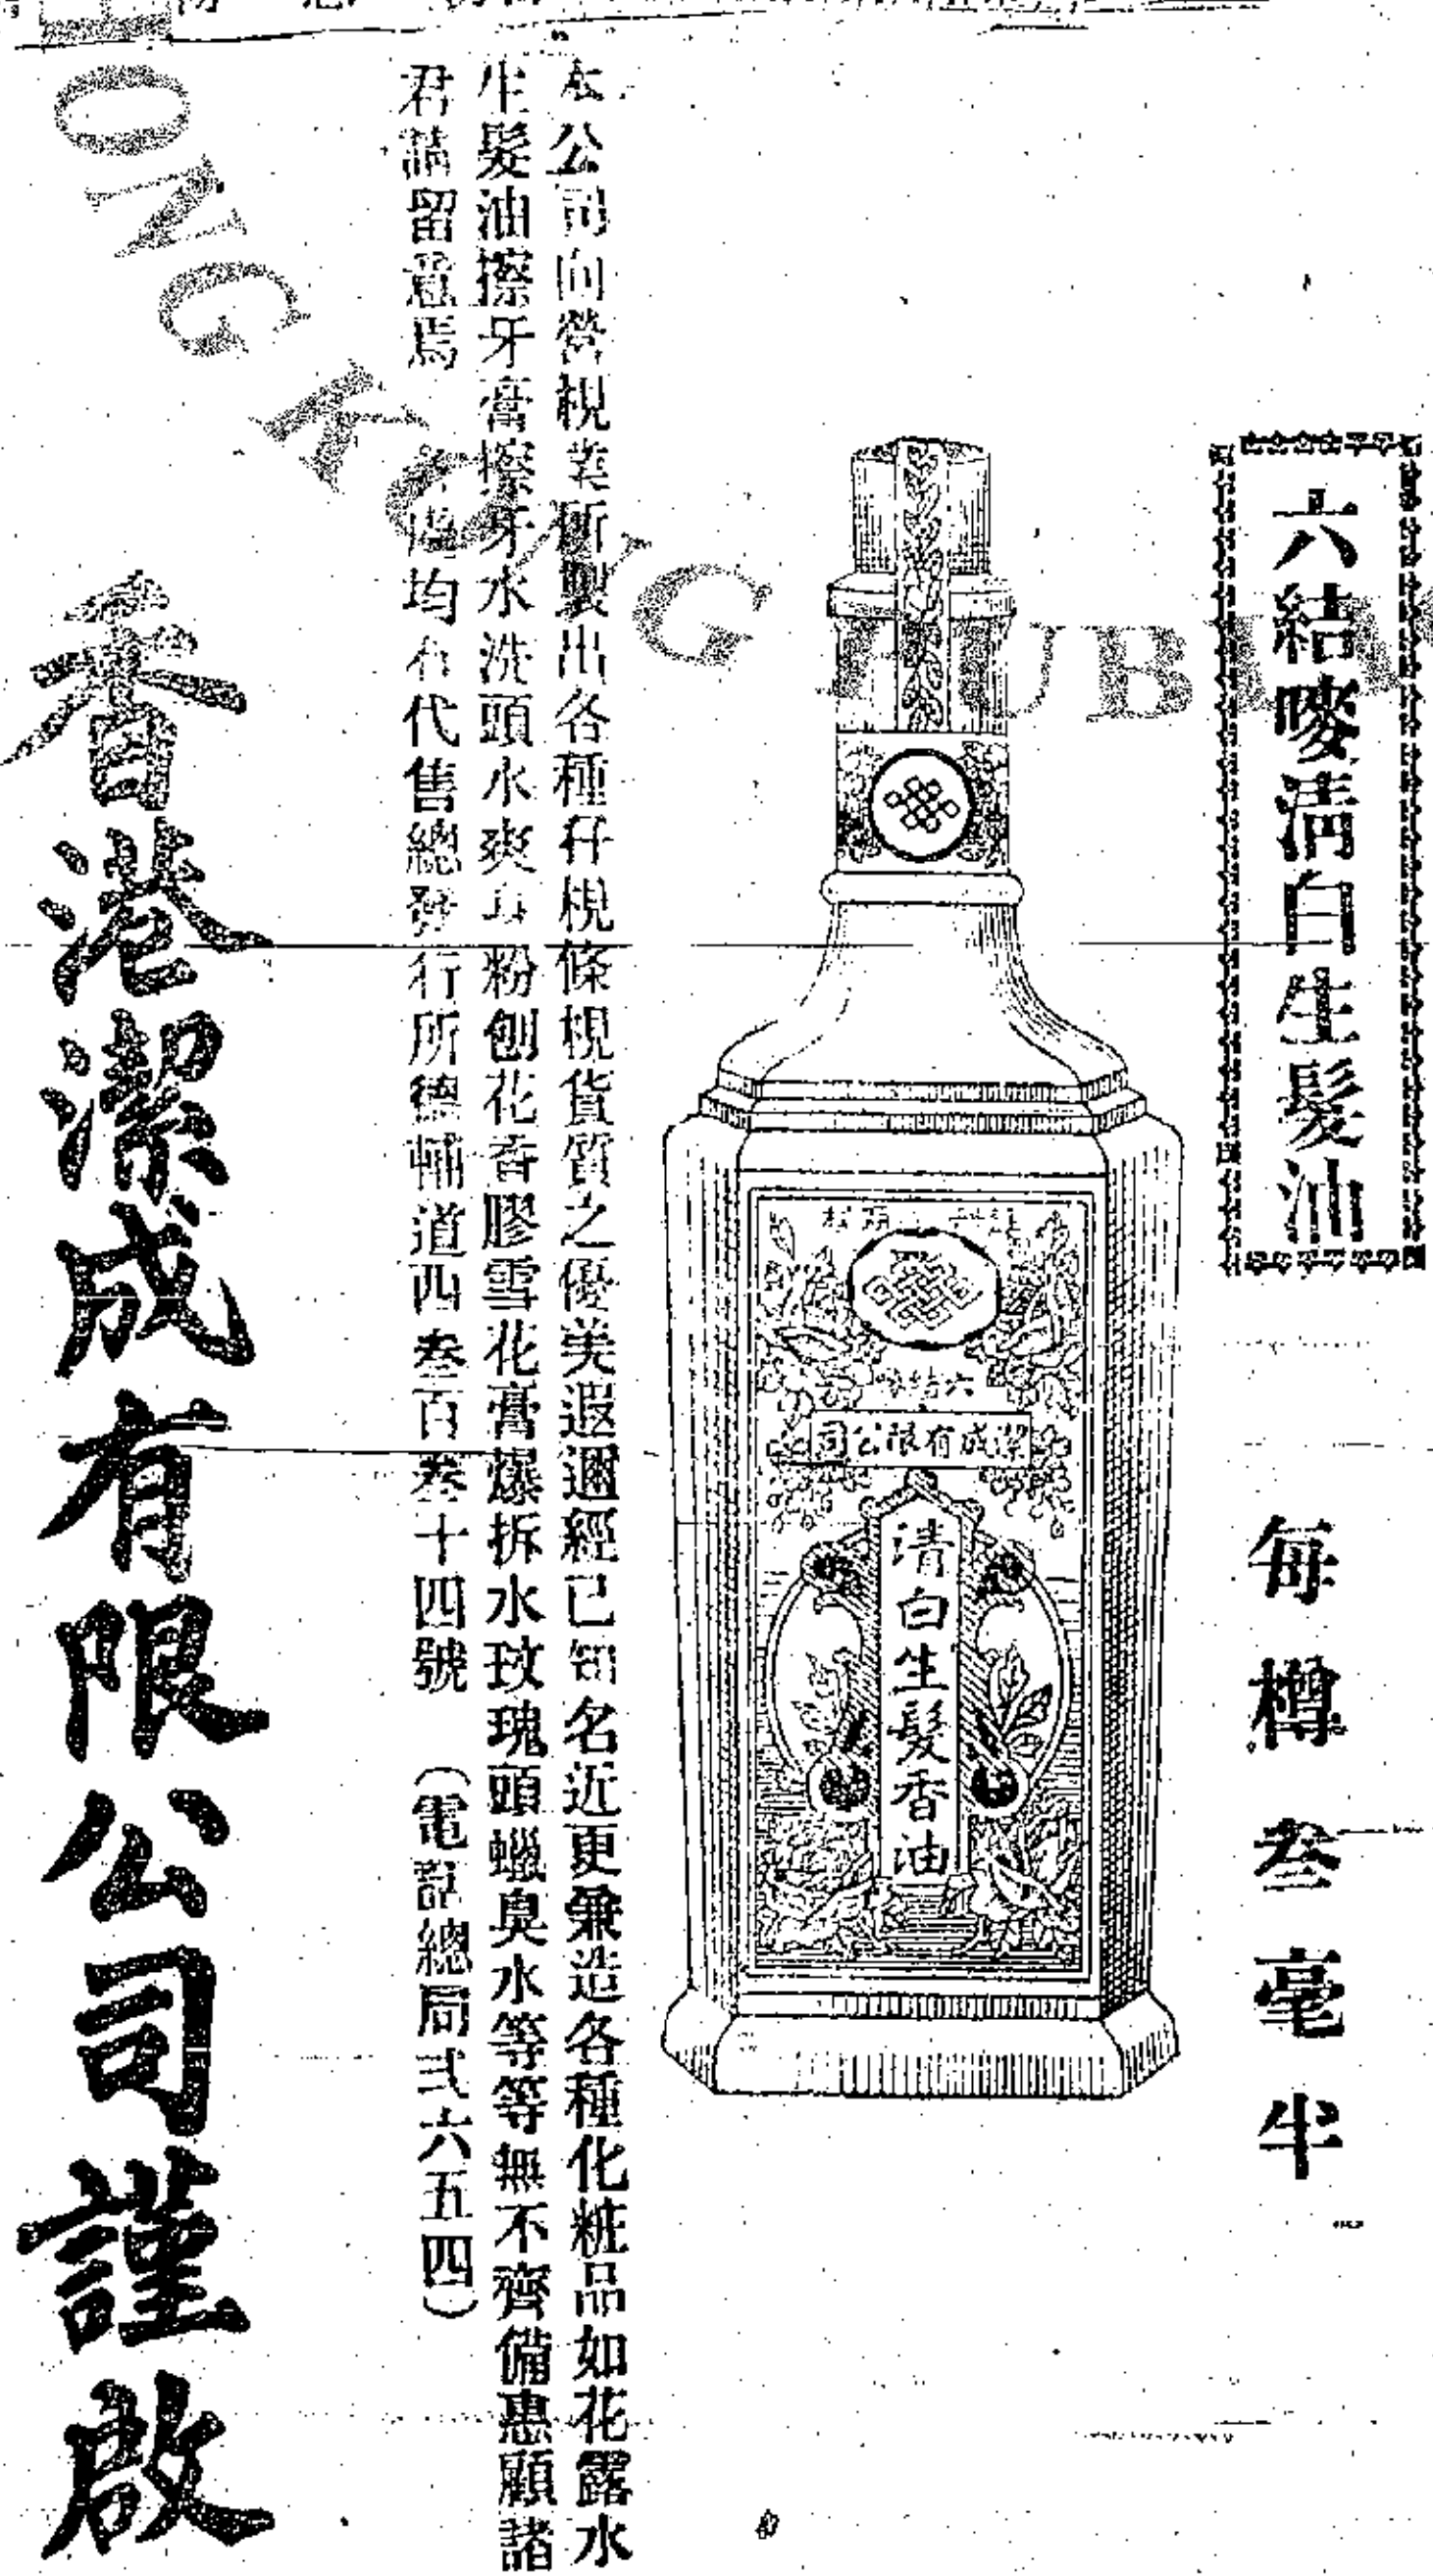 六結嘜清白生髮油
每樽叁毫半
六結嘜
潔成有限公司
清白生髮香油
本公司向營梘業所製出各種仔梘條梘貨質之優美遐邇經已知名近更兼造各種化粧品如花露水
生髮油擦牙膏擦牙水洗頭水爽身粉刨花香膠雪花膏爆拆水玫瑰頭蠟臭水等等無不齊備惠顧諸
君請留意焉 均有代售總發行所德輔道西叁百叁十四號 (電話總局弍六五四)
香港潔成有限公司謹啟
HONG KONG PUBLIC